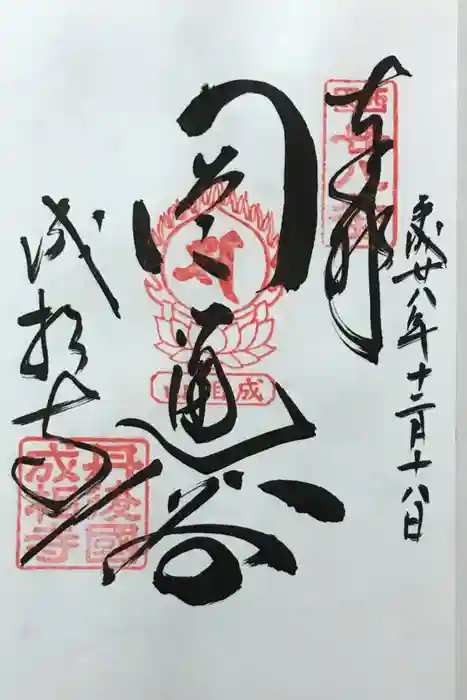 平成廿八年十二月十八日
奉拝
西國廿八番
圓通閣
成相山
成相寺
丹後國
成相寺